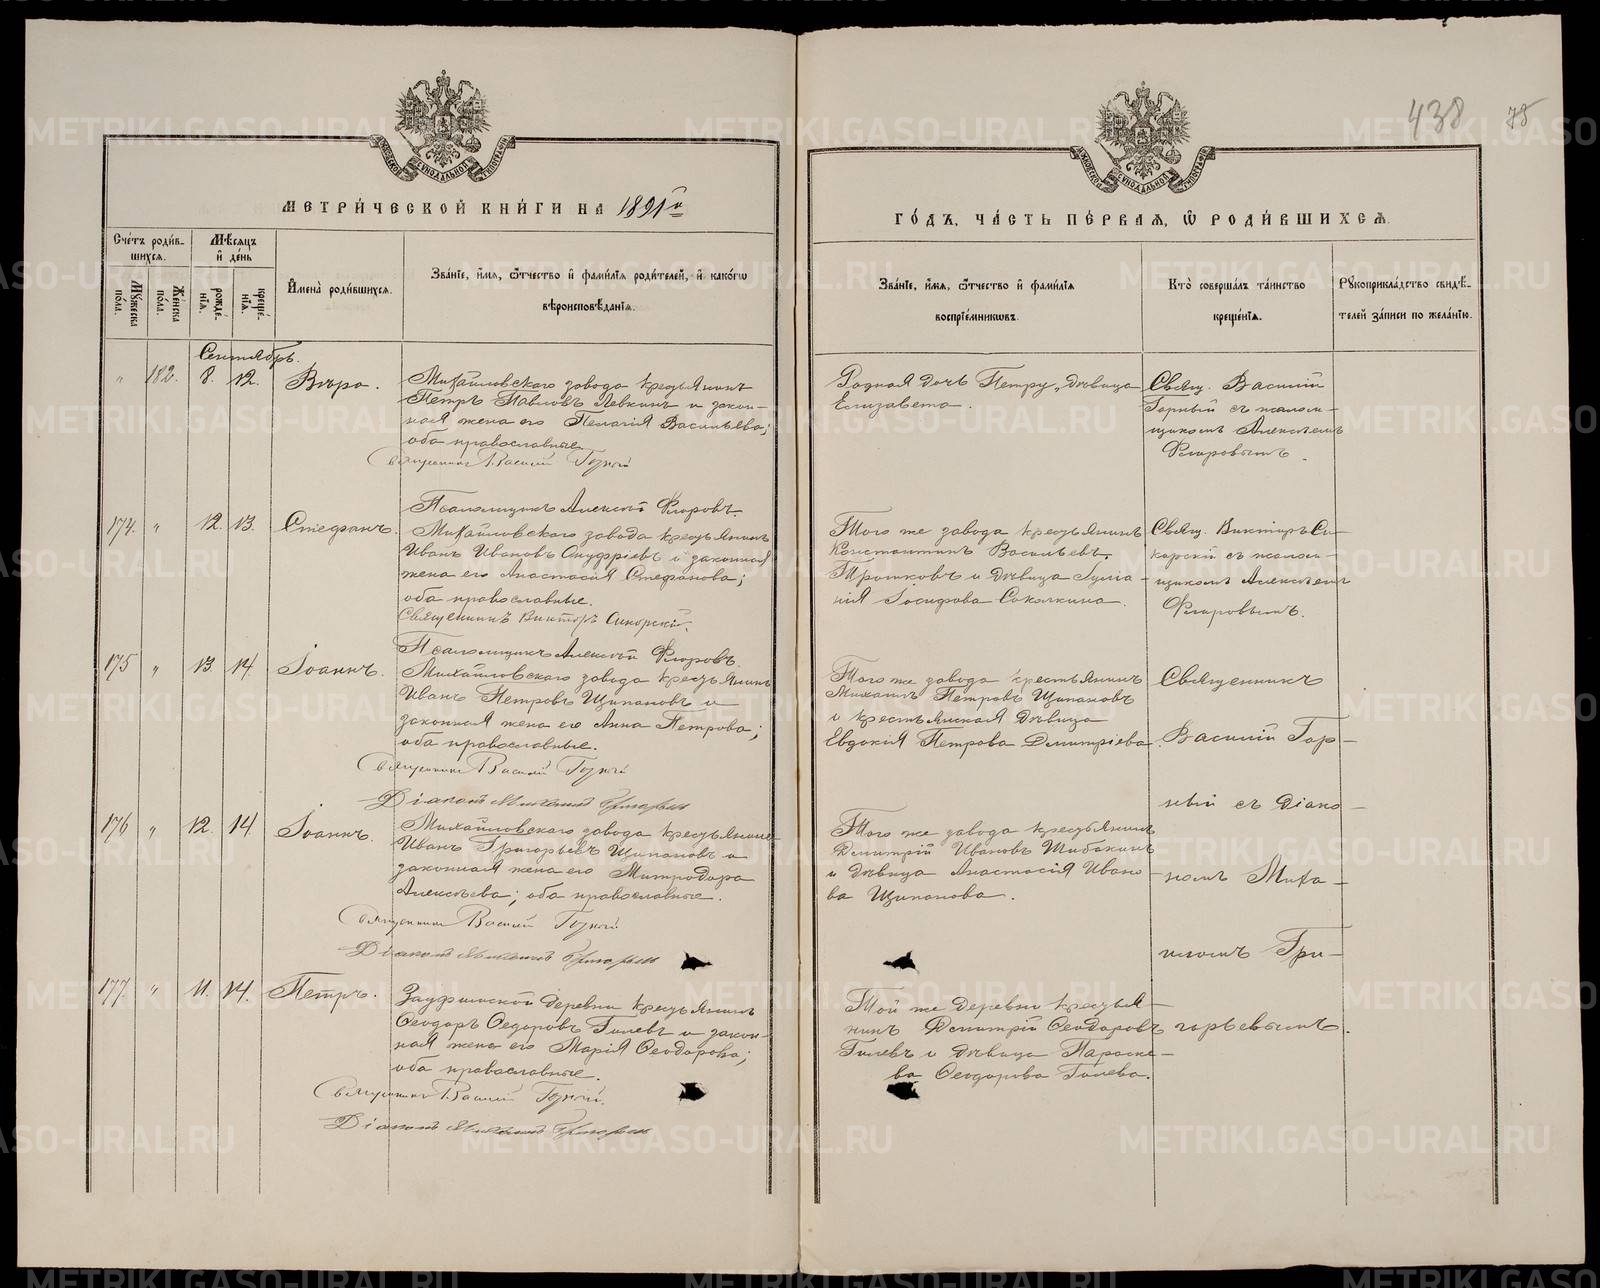 438 78
МЕТРИ́ЧЕСКОЙ КНИ́ГИ НА 1891й
ГО́ДЪ, ЧА́СТЬ ПЕ́РВАЯ, Ѿ РОДИ́ВШИХСЯ.
Сче́тъ роди́в-
шихся.
Му́жеска пола.
Же́нска пола.
Мѣ́сяцъ и̂ де́нь
рожде́-
нїя.
креще́-
нїя.
И̂мена̀ роди́вшихся.
Зва́нїе, и̂мя, ѻ҆́тчество и̂ фами́лїя роди́телей, и̂ како́гѡ
вѣроисповѣ́данїя.
Зва́нїе, и̂мя, ѻ҆́тчество и̂ фами́лїя
воспрїе́мниковъ.
Кто̀ соверша́лъ та́инство
креще́нїя.
Рꙋкоприкла́дство свидѣ́-
телей за́писи по жела́нїю.
Сентябрь.
" 182. 8. 12. Вѣра.
Михайловскаго завода крестьянинъ
Петръ Павловъ Левкинъ и закон-
ная жена его Пелагія Васильева;
оба православные.
Священникъ Василій Горный
Псаломщикъ Алексѣй Флоровъ.
Родная дочь Петру, дѣвица
Елизавета.
Свящ. Василій
Горный съ псалом-
щикомъ Алексѣемъ
Флоровымъ.
174. " 12. 13. Стефанъ.
Михайловскаго завода крестьянинъ
Иванъ Ивановъ Онуфріевъ и законная
жена его Анастасія Стефанова;
оба православные.
Священникъ Викторъ Сикорскій.
Псаломщикъ Алексѣй Флоровъ.
Того же завода крестьянинъ
Константинъ Васильевъ
Трошковъ и дѣвица Гулиа-
нія Іосифова Соколкина.
Свящ. Викторъ Си-
корскій съ псалом-
щикомъ Алексѣемъ
Флоровымъ.
175 " 13. 14. Іоаннъ.
Михайловскаго завода крестьянинъ
Иванъ Петровъ Щипановъ и
законная жена его Анна Петрова;
оба православные.
Священникъ Василій Горный
Діаконъ Михаилъ Григорьев
Того же завода крестьянинъ
Михаилъ Петровъ Щипановъ
и крестьянская дѣвица
Евдокія Петрова Дмитріева.
Священникъ
Василій Гор-
ный съ Діако-
номъ Миха-
иломъ Гри-
горьевымъ.
176 " 12. 14. Іоаннъ.
Михайловскаго завода крестьянинъ
Иванъ Григорьевъ Щипановъ и
законная жена его Митродора
Алексѣева; оба православные.
Священникъ Василій Горный
Діаконъ Михаилъ Григорьев
Того же завода крестьянинъ
Дмитрій Ивановъ Шибакинъ
и дѣвица Анастасія Ивано-
ва Щипанова.
177. " 11. 14. Петръ.
Зауфимской деревни крестьянинъ
Ѳеодоръ Ѳедоровъ Гилевъ и закон-
ная жена его Марія Ѳеодорова;
оба православные.
Священникъ Василій Горный.
Діаконъ Михаилъ Григорьев
Той же деревни крестья-
нинъ Дмитрій Ѳеодоровъ
Гилевъ и дѣвица Параске-
ва Ѳеодорова Гилева.